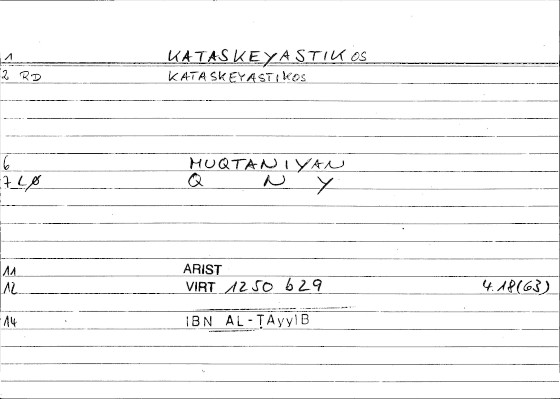 1 KATASKEYASTIKOS
2 RD KATASKEYASTIKOS
6 MUQTANIYAN
7 LØ Q N Y
11 ARIST
12 VIRT 1250 b29 4.18(63)
14 IBN AL-ṬAyyIB